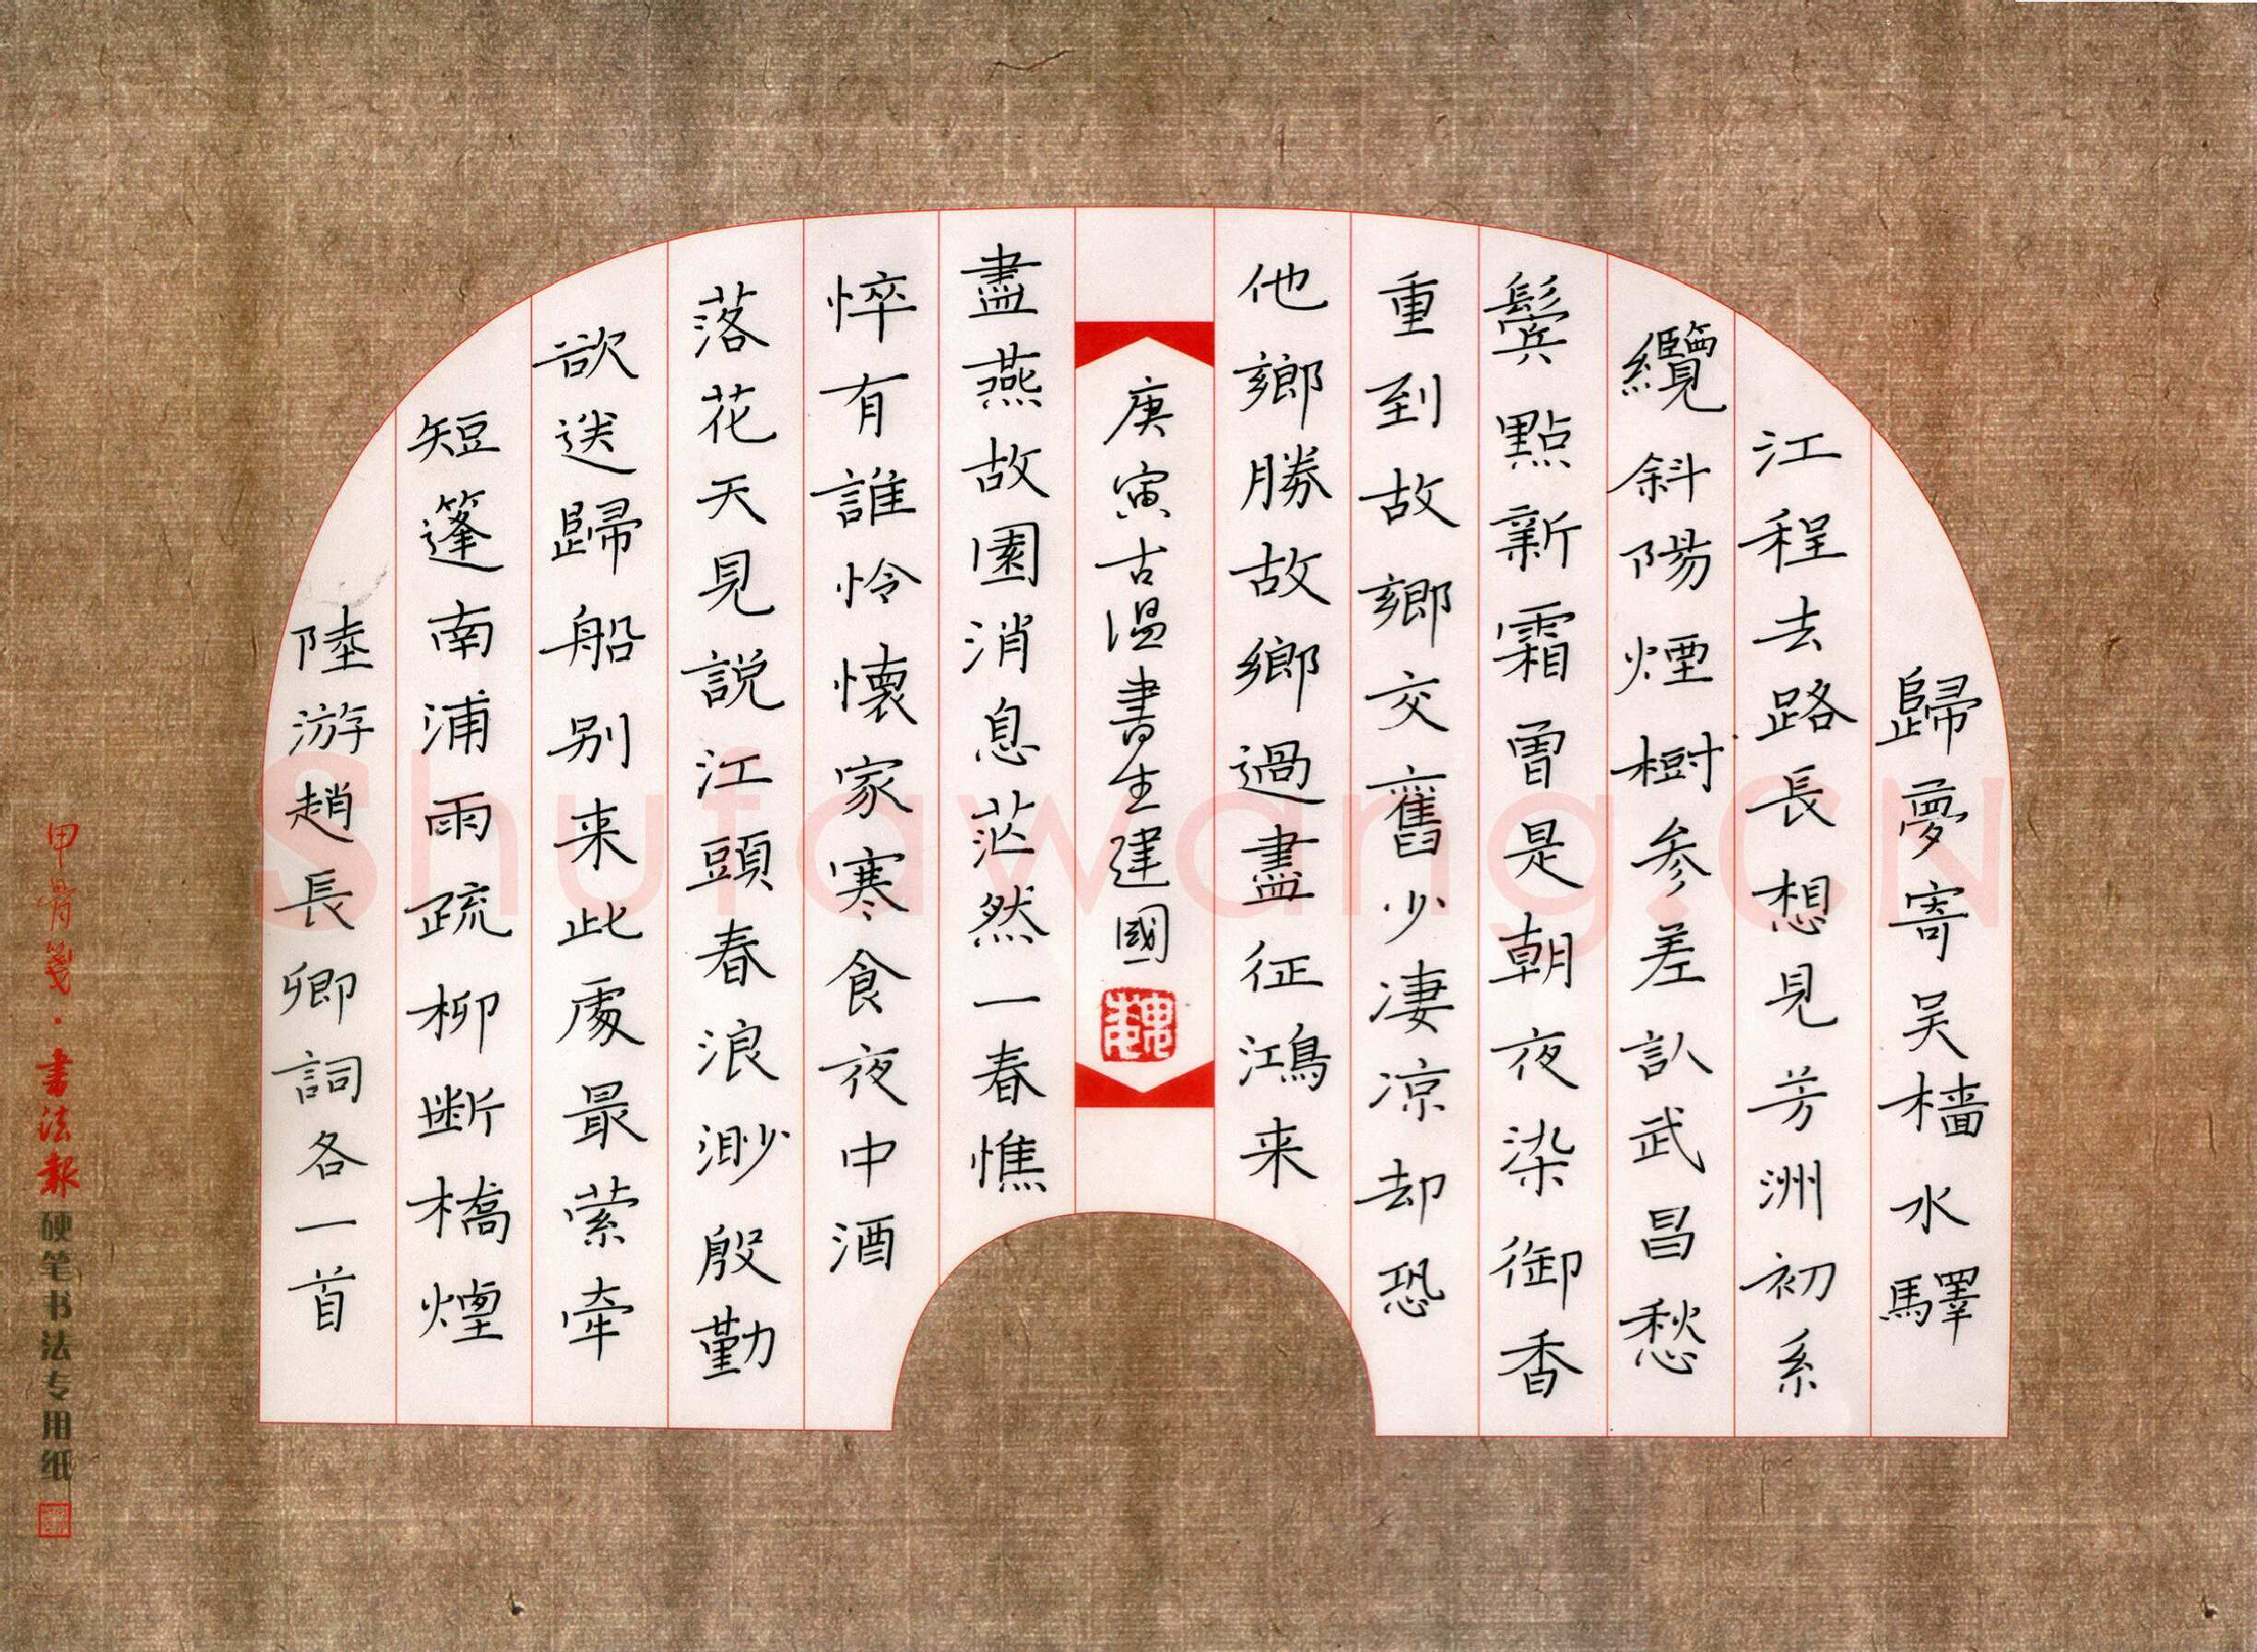 歸夢寄吴檣水驛
江程去路長想見芳洲初系
纜斜陽煙樹参差認武昌愁
鬢點新霜曾是朝夜染御香
重到故鄉交舊少凄凉却恐
他鄉勝故鄉過盡征鴻来
庚寅古温書生建國
魏
盡燕故園消息茫然一春憔
悴有誰怜懷家寒食夜中酒
落花天見説江頭春浪渺殷勤
欲送歸船别来此處最縈牽
短篷南浦雨疏柳断橋煙
陸游趙長卿詞各一首
甲骨箋·書法報硬笔书法专用纸
Shufawang.CN